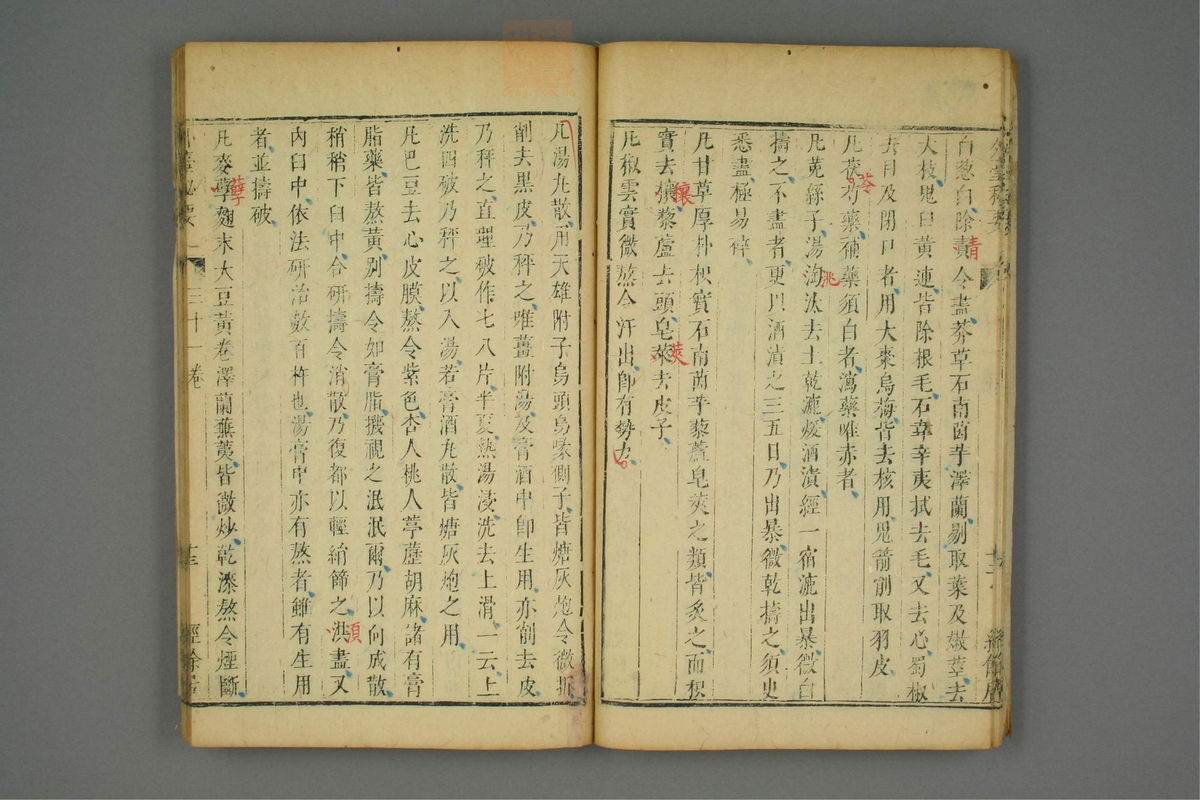 白葱白除青令盡莽草石南茵芋澤蘭剔取葉及嫩莖去
大枝鬼臼黄連皆除根毛石韋辛夷拭去毛又去心蜀椒
去目及閉口者用大棗烏梅皆去核用鬼箭削取羽皮
凡茯苓芍藥補藥須白者瀉藥唯赤者
凡菟絲子湯淘汰去土乾漉煖酒漬經一宿漉出暴微白
擣之不盡者更以酒漬之三五日乃出暴微乾擣之須臾
悉盡極易碎
凡甘草厚朴枳實石南茵芋藜蘆皂莢之類皆炙之而枳
實去穰藜蘆去頭皂莢去皮子
凡椒雲實微熬令汗出卽有勢力
凡湯丸散用天雄附子烏頭烏喙側子皆煻灰炮令微拆
削去黑皮乃秤之唯薑附湯及膏酒中卽生用亦削去皮
乃秤之直理破作七八片半夏熱湯浸洗去上滑一云上
洗四破乃秤之以入湯若膏酒丸散皆煻灰炮之用
凡巴豆去心皮膜熬令紫色杏人桃人葶藶胡麻諸有膏
脂藥皆熬黄别擣令如膏脂㨫視之泯泯爾乃以向成散
稍稍下臼中合研擣令消散乃復都以輕絹篩之須盡又
內臼中依法研治數百杵也湯膏中亦有熬者雖有生用
者並擣破
凡麥蘖麴末大豆黄卷澤蘭蕪荑皆微炒乾漆熬令煙斷
外臺秘要 三十一卷 十三 經餘居